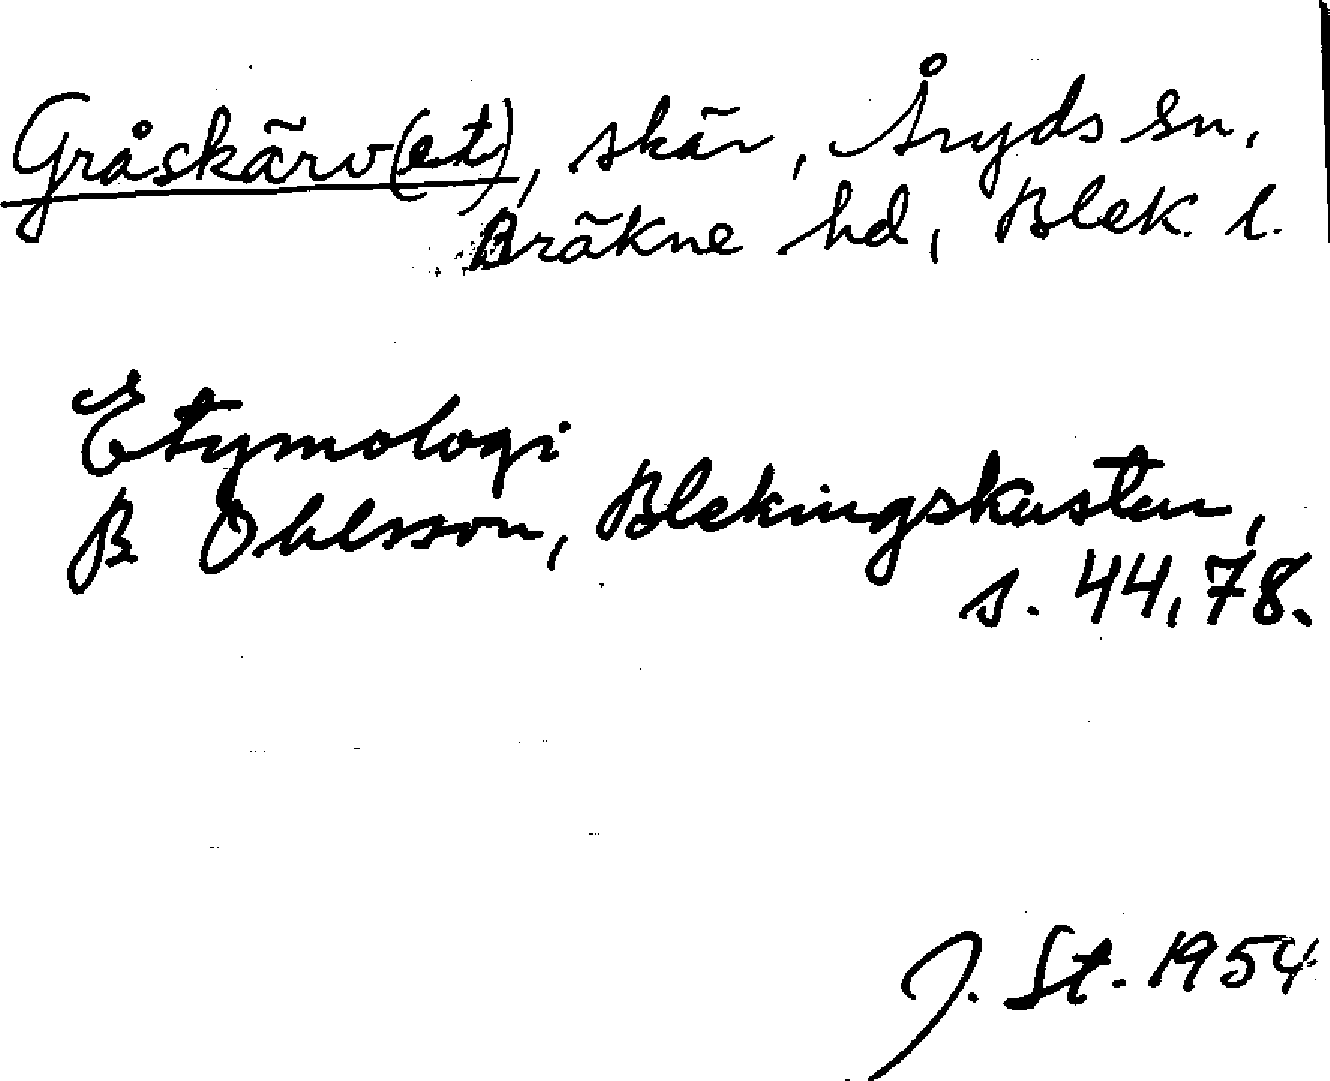 Gråskärv(et), skär, Åryds sn,
Bräkne hd, Blek. l.
Etymologi
B Ohlsson, Blekingskusten,
s. 44, 78.
J. St. 1954